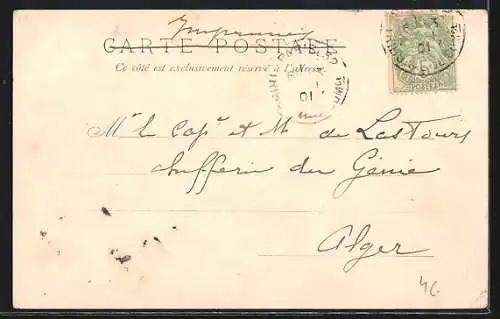 Imprimés
CARTE POSTALE
Ce côté est exclusivement réservé à l'adresse
01
01
5
POSTES
Mr le Capne et Me de Lastours
du Génie
Alger